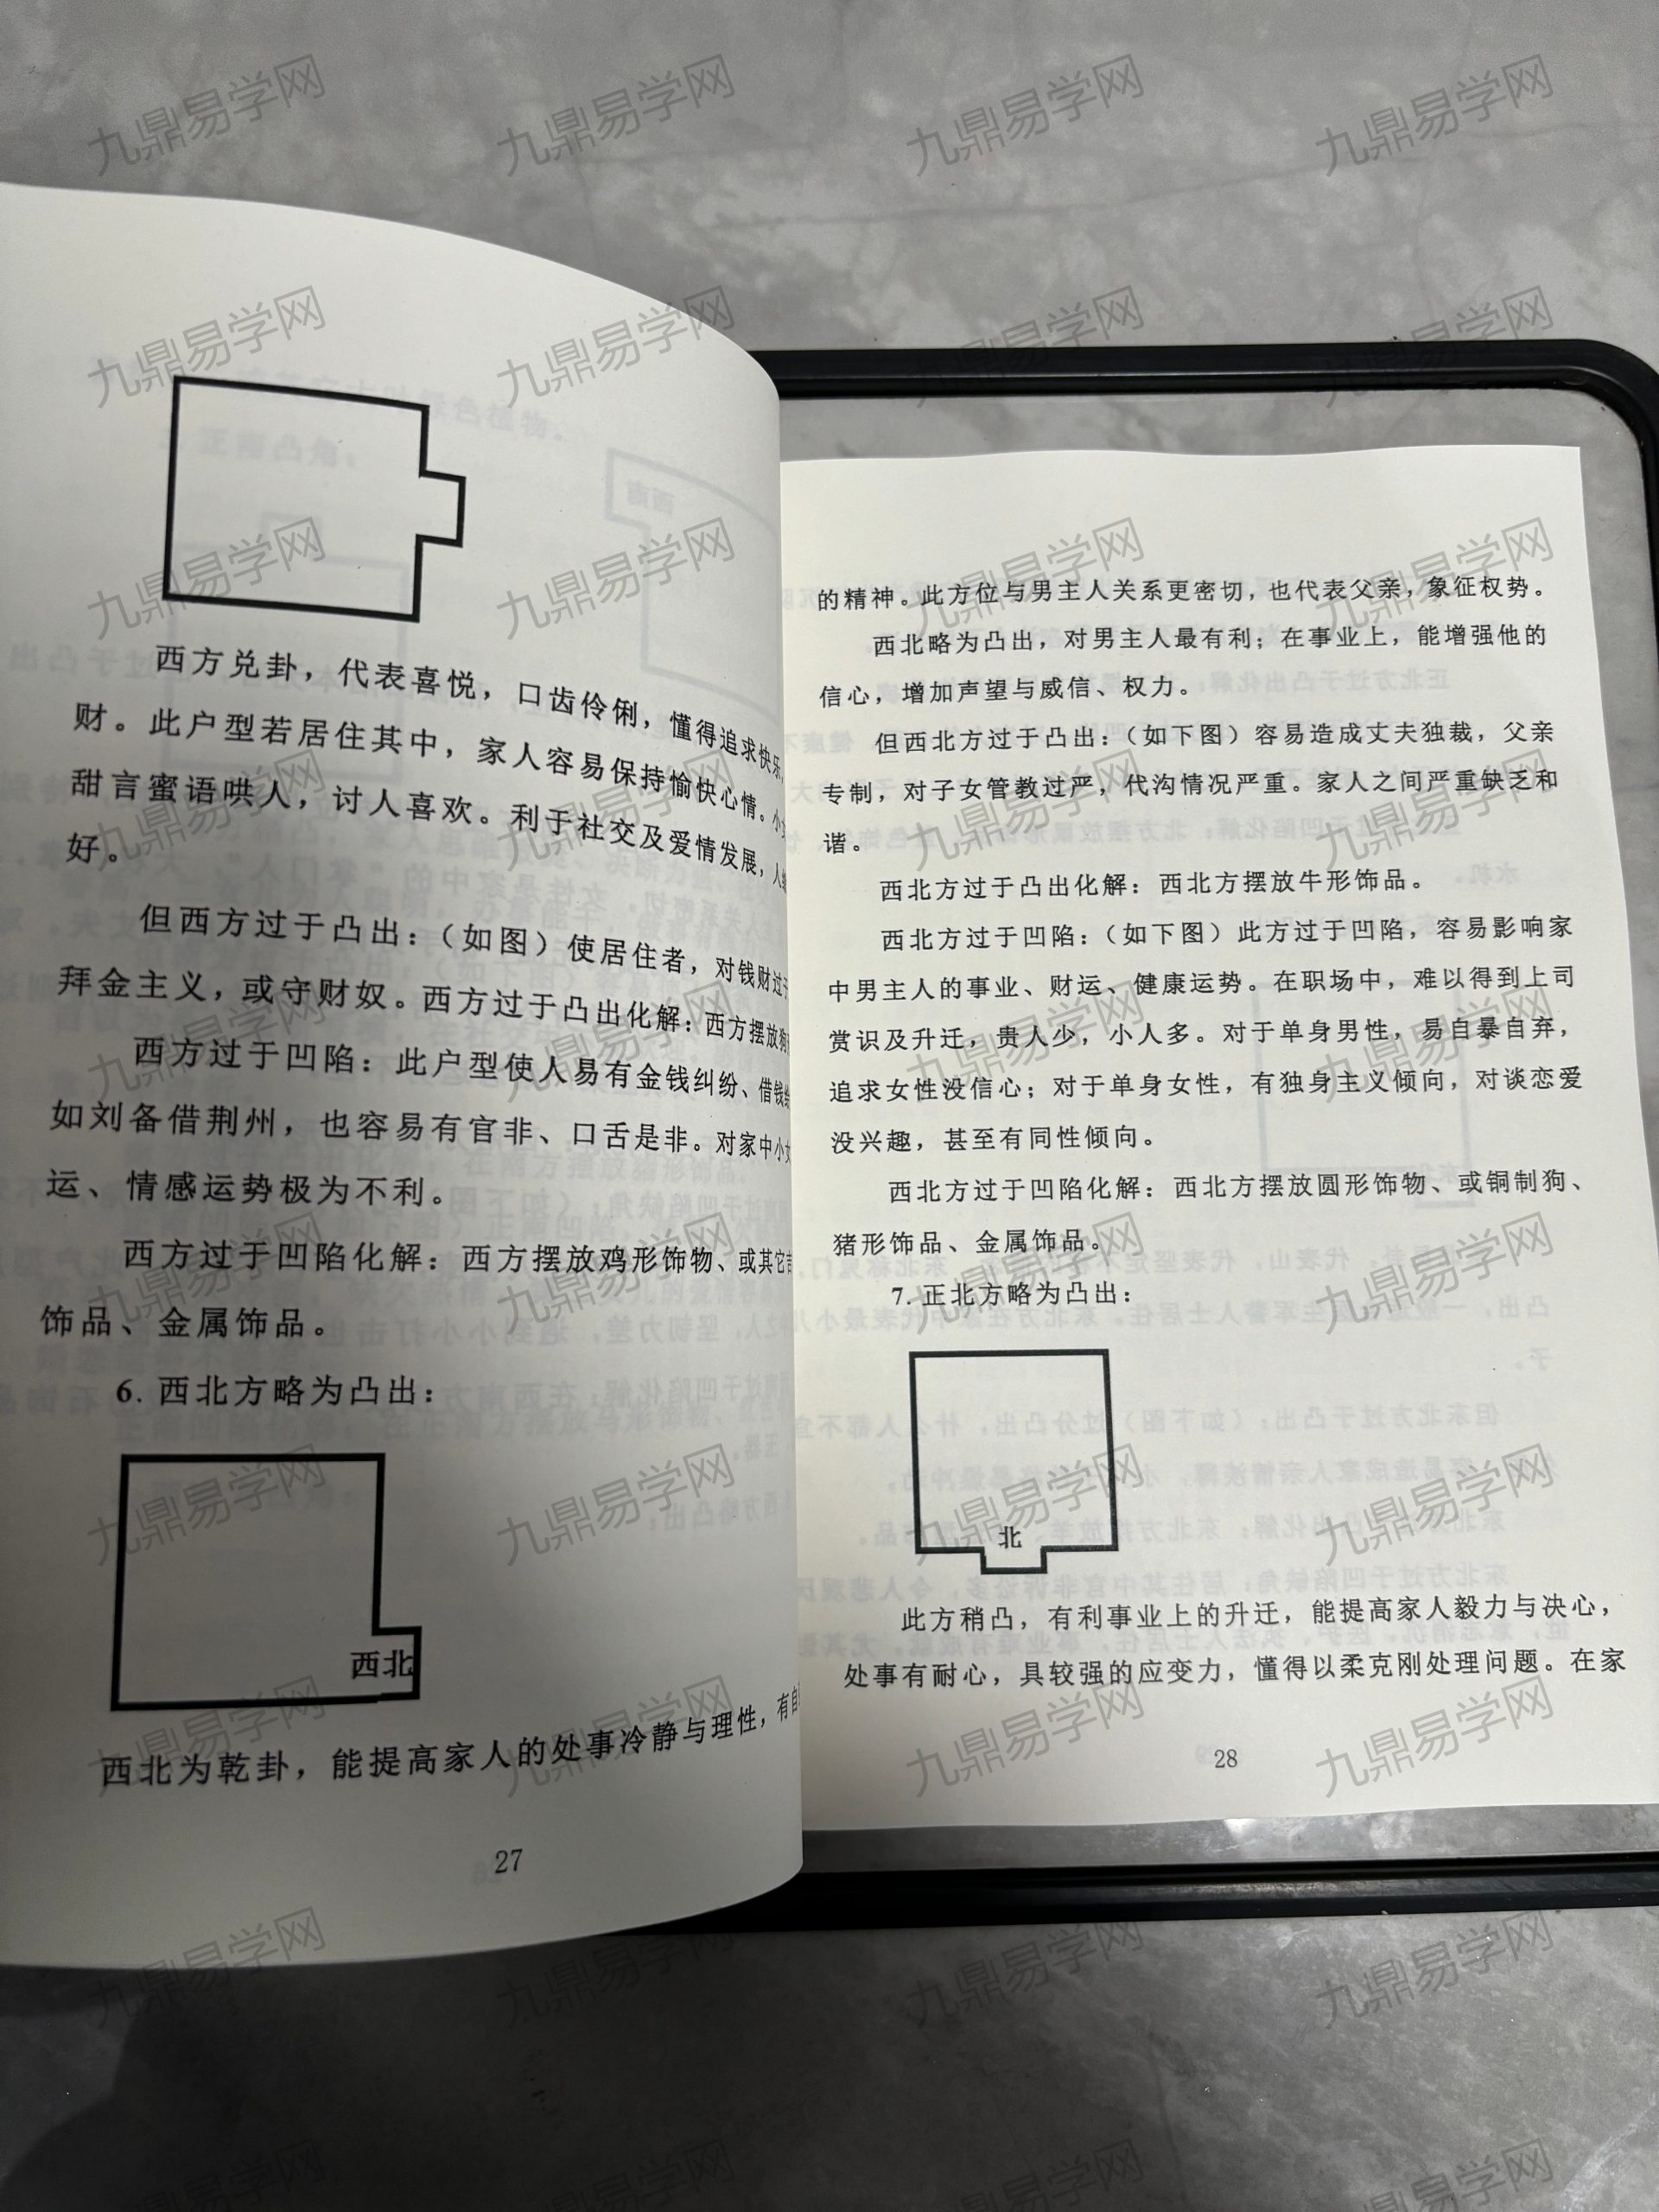 西方兑卦，代表喜悦，口齿伶俐，懂得追求快乐，
财。此户型若居住其中，家人容易保持愉快心情。小
甜言蜜语哄人，讨人喜欢。利于社交及爱情发展，人
好。
但西方过于凸出：（如图）使居住者，对钱财过于
拜金主义，或守财奴。西方过于凸出化解：西方摆放狗
西方过于凹陷：此户型使人易有金钱纠纷、借钱
如刘备借荆州，也容易有官非、口舌是非。对家中小
运、情感运势极为不利。
西方过于凹陷化解：西方摆放鸡形饰物、或其它
饰品、金属饰品。
6. 西北方略为凸出：
西北
西北为乾卦，能提高家人的处事冷静与理性，有自
27
的精神。此方位与男主人关系更密切，也代表父亲，象征权势。
西北略为凸出，对男主人最有利；在事业上，能增强他的
信心，增加声望与威信、权力。
但西北方过于凸出：（如下图）容易造成丈夫独裁，父亲
专制，对子女管教过严，代沟情况严重。家人之间严重缺乏和
谐。
西北方过于凸出化解：西北方摆放牛形饰品。
西北方过于凹陷：（如下图）此方过于凹陷，容易影响家
中男主人的事业、财运、健康运势。在职场中，难以得到上司
赏识及升迁，贵人少，小人多。对于单身男性，易自暴自弃，
追求女性没信心；对于单身女性，有独身主义倾向，对谈恋爱
没兴趣，甚至有同性倾向。
西北方过于凹陷化解：西北方摆放圆形饰物、或铜制狗、
猪形饰品、金属饰品。
7. 正北方略为凸出：
北
此方稍凸，有利事业上的升迁，能提高家人毅力与决心，
处事有耐心，具较强的应变力，懂得以柔克刚处理问题。在家
28
九鼎易学网